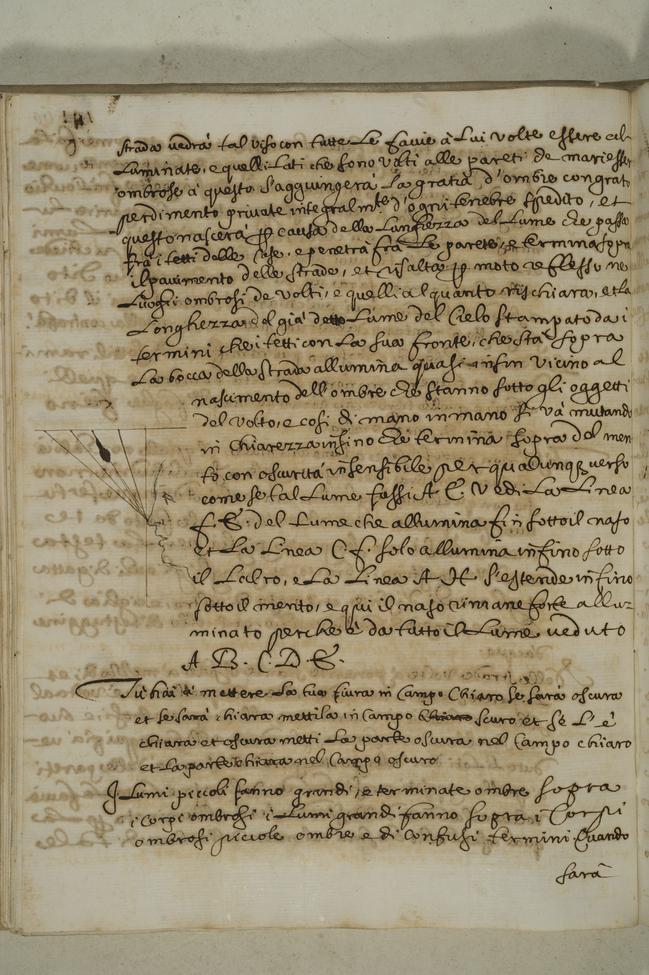 strada vedra tal viso con tutte le faccie à lui volte essere al-
luminate, e quelli lati che sono volti alle pareti
ombrose a questo s'aggiungerà la gratia d'ombre con grato
perdimento private integralmte d'ogni tenebre spedito, et
questo nascerà p causa della lunghezza del lume che passa
frà i tetti delle case, e penetra frà le parete, e termina sopra
il pavimento delle strade, et risalta p moto reflesso ne
luoghi ombrosi de volti, e quelli alquanto rischiara, et la
longhezza del già detto lume del cielo stampato da i
termini che i tetti con la sua fronte, che stà sopra
la bocca della strada allumina quasi infin vicino al
nascimento dell'ombre che stanno sotto gli oggetti
del volto, e cosi di mano in mano si và mutando
in chiarezza insino che termina sopra del men
to con oscurità insensibile per qualunq verso
come se tal lume fassi A E vedi la linea
F. E. del lume che allumina fin sotto il naso
et la linea C. F. solo allumina infino sotto
il labro, e la linea A H s'estende infino
sotto il mento, e qui il naso rimane forte allu=
minato perche è da tutto il lume veduto
A. B. C. D. E.
Tu hai à mettere la tua fiura in campo chiaro se sara oscura
et se sarà chiara mettila in campo scuro et se l'è
chiara et oscura metti la parte oscura nel campo chiaro
et la parte chiara nel campo oscuro
I lumi piccoli fanno grandi, e terminate ombre sopra
i corpi ombrosi i lumi grandi fanno sopra i corpi
ombrosi picciole ombre e di confusi termini Quando
sarà